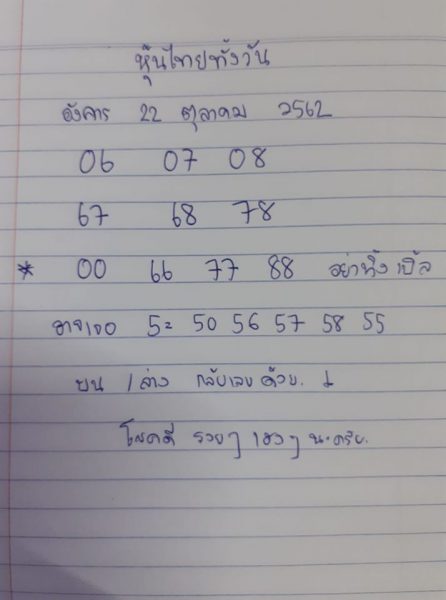 หุ้นไทยทั้งวัน
อังคาร 22 ตุลาคม 2562
06 07 08
67 68 78
* 00 66 77 88 อย่าทิ้งเบิ้ล
อาจเจอ 5= 50 56 57 58 55
บน / ล่าง กลับเลขด้วย.
โชคดี รวยๆ เฮงๆ นะครับ.